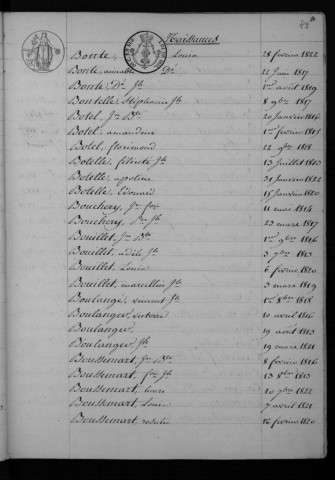 Naissances
Bonte, Louise 28 février 1822
Bonte, aimable Dé 22 Juin 1817
Bonte, Dé Jh 1er août 1819
Bontelle, Stéphanie Jh 8 9bre 1817
Botel, Jn Bte 20 Janvier 1814
Botel, amandine 1er février 1815
Botel, florimond 22 9bre 1818
Botelle, 13 Juillet 1813
Botelle, apoline 31 Janvier 1822
Botelle, Edouard 15 Janvier 1820
Bouchery, Jn fois 11 mars 1814
Bouchery, Jh 23 mars 1817
Bouillet, Jn Bte 1er 9bre 1816
Bouillet, adèle Jh 3 9bre 1813
Bouillet, Louis 6 février 1820
Bouillet, marcellin Jh 3 mars 1819
Boulangé, vincent Jh 1er 8bre 1818
Boulanger, victoire 10 avril 1816
Boulanger, 19 août 1813
Boulanger, Jh 19 mars 1821
Boussemart, Jn Bte 8 février 1816
Boussemart, Jh 13 8bre 1813
Boussemart, 10 9bre 1822
Boussemart, Louis 7 avril 1821
Boussemart, rosalie février 1820